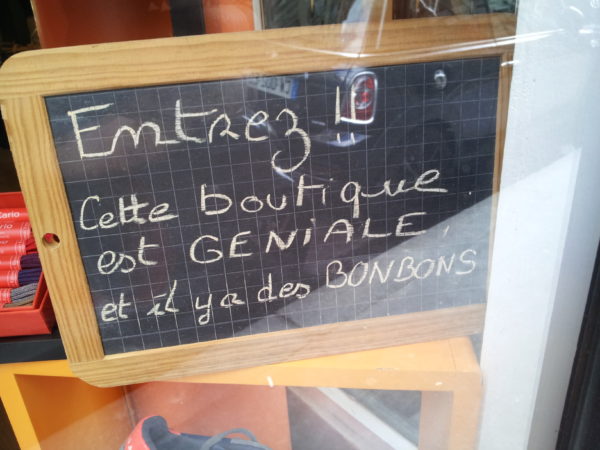 Entrez !!
Cette boutique
est GENIALE,
et il y a des BONBONS
Cario